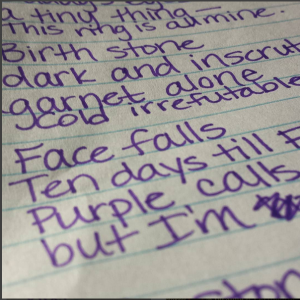 a tiny thing —
This ring is all mine.
Birth stone
dark and
garnet alone
cold irrefutable
Face falls
Ten days till
Purple calls
but I'm